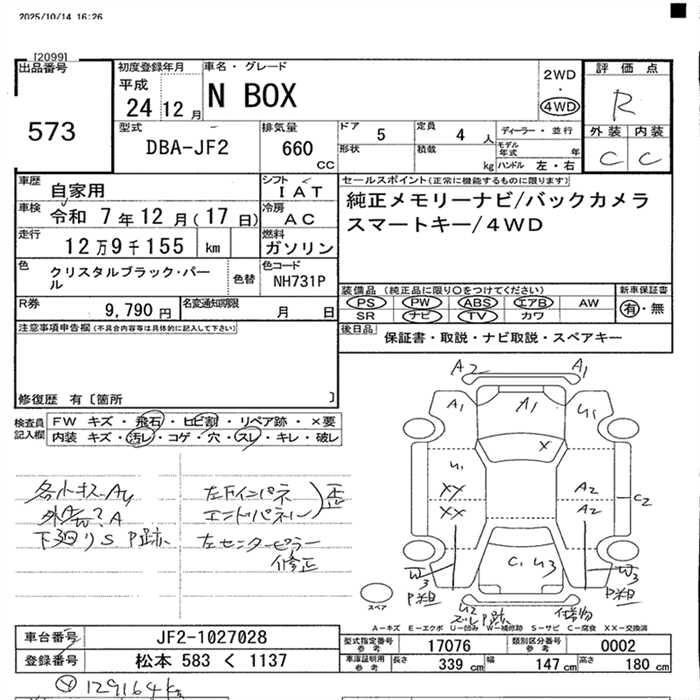 2025/10/14 16:26
[2099]
出品番号
573
初度登録年月
平成
24 12 月
車名・グレード
N BOX
2WD
・
4WD
評価点
R
外装 内装
C C
型式
DBA-JF2
排気量
660 CC
ドア 5
定員 4 人
形状
積載 kg
ディーラー・並行
モデル年式 年
ハンドル 左・右
車歴 自家用
シフト IAT
車検 令和 7年 12月(17日)
冷房 AC
走行 12万9千155 km
燃料 ガソリン
色 クリスタルブラック・パール
色替
色コード NH731P
R券 9,790円
名変通知期限 月 日
セールスポイント(正常に機能するものに限ります)
純正メモリーナビ/バックカメラ
スマートキー/4WD
装備品 (純正品に限り○をつけてください)
PS PW ABS エアB AW
SR ナビ TV カワ
新車保証書
有・無
後日品 保証書・取説・ナビ取説・スペアキー
注意事項申告欄(不具合内容等は具体的に記入して下さい)
修復歴 有〔箇所 〕
検査員記入欄
FW キズ・飛石・ヒビ割・リペア跡・×要
内装 キズ・汚レ・コゲ・穴・スレ・キレ・破レ
下廻りS P跡
左インパネ
エンドパネル
歪
左センターピラー
修正
A2 A1
A1 A1 U1
X
U1
XX A2
XX A2
C2
C1 U3
W3 W3
P柑
U2
スレ P跡
スペア
A-キズ E-エクボ U-凹み W-補修跡 S-サビ C-腐食 XX-交換済
車台番号 JF2-1027028
登録番号 松本 583 く 1137
型式指定番号 参考 17076
類別区分番号 参考 0002
車庫証明用 参考 長さ 339 cm 幅 147 cm 高さ 180 cm
129164km